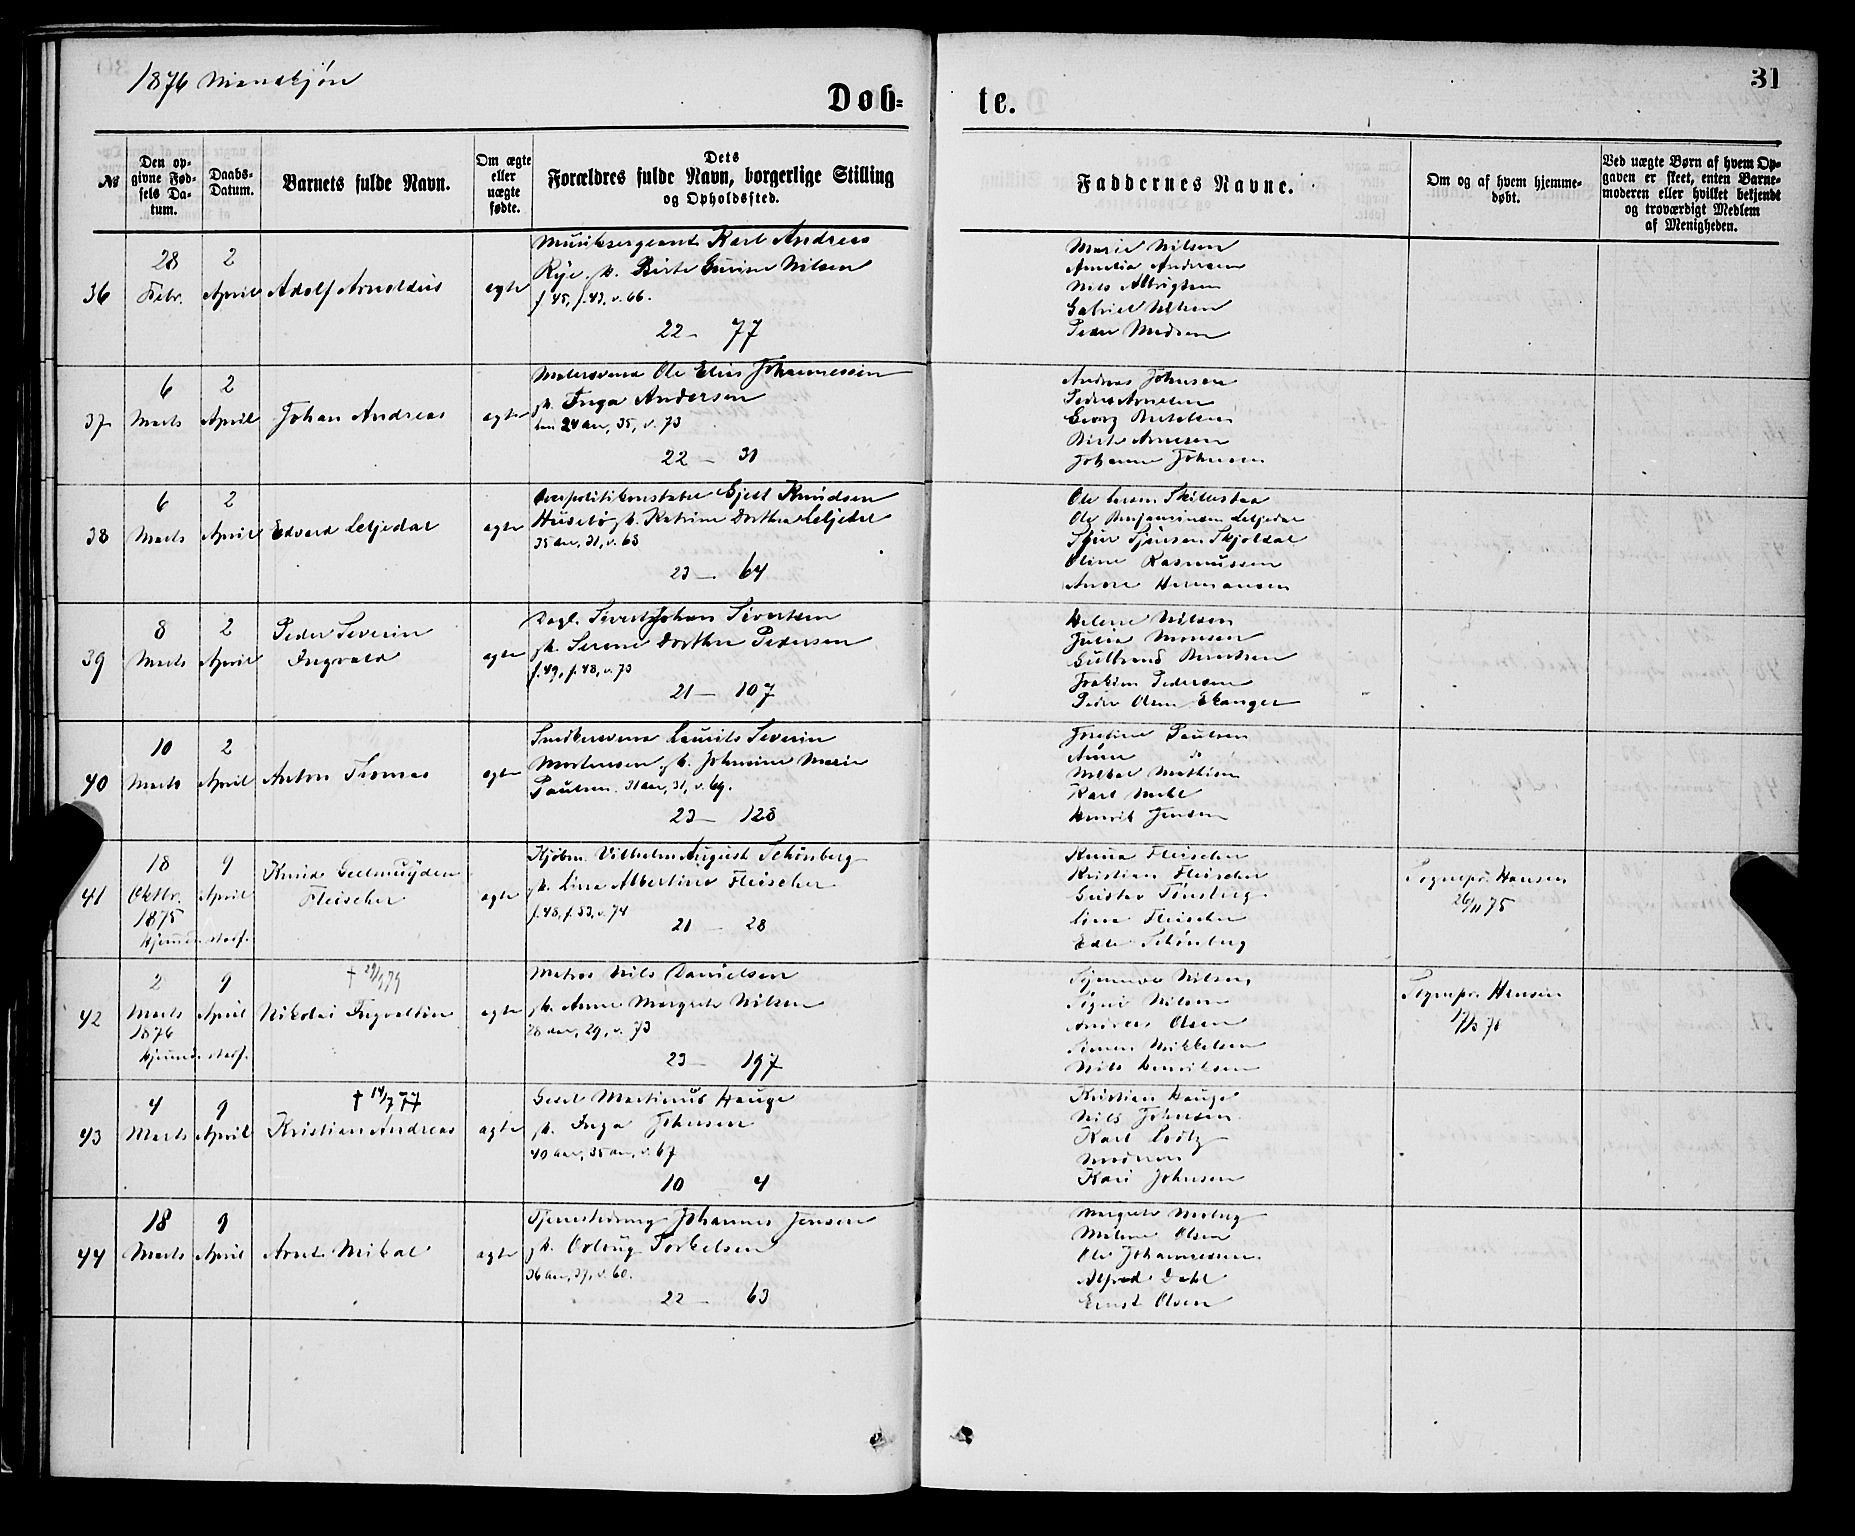 1876 Mandkjøn
31
Døb=
te.
№
Den op-
givne Fød-
sels Da-
tum.
Daabs-
Datum.
Barnets fulde Navn.
Om ægte
eller
uægte
fødte.
Dets
Forældres fulde Navn, borgerlige Stilling
og Opholdssted.
Faddernes Navne.
Om og af hvem hjemme-
døbt.
Ved uægte Børn af hvem Op-
gaven er skeet, enten Barne-
moderen eller hvilket bekjendt
og troværdigt Medlem
af Menigheden.
36
28
Febr.
2
April
Adolf Arnoldus
egte
Musiksergeant Karl Andreas
Rye, h. Birte Nilsen
f. 45, f. 43, v. 66.
22 - 77
Marie Nilsen
Amalia Andersen
Nils Albrigtsen
Gabriel Nilsen
Peder Madsen
37
6
Marts
2
April
Johan Andreas
egte
Malersvend Ole Elias Johannessen
h. Inga Andersen
24 aar, 35, v. 73
22 - 31
Andreas Johnsen
Peder Arnesen
Georg Bertelsen
Birte Arnesen
Johanne Johnsen
38
6
Marts
2
April
Edvard Leljedal
egte
Overpolitikonstabel Gjert Knudsen
Husebø, h. Katrine Dorthea Leljedal
35 aar, 31, v. 68
23 - 64
Ole Larsen Skillestad
Ole Benjaminsen Leljedal
Skjoldal
Oline Rasmussen
Anne Hermansen
39
8
Marts
2
April
Peder Severin
Ingvald
egte
Dagl. Sivert Johan Sivertsen
h. Serine Dorthea Pedersen
f. 49, f. 48, v. 73
21 - 107
Helene Nilsen
Julia Monsen
Gulbrand Berntsen
Joakim Pedersen
Peder Olsen Ekanger
40
10
Marts
2
April
Anton Tomas
egte
Snedkersvend Laurits Severin
Mortensen, h. Johanne Marie
Paulsen. 31 aar, 31, v. 69.
23 - 128
Josefine Paulsen
Anne do
Mikal Mathisen
Karl
Henrik Jensen
41
18
Oktbr.
1875
Hjemmedøbt.
9
April
Knud Geelmuyden
Fleischer
egte
Kjøbm. Vilhelm August Schønberg
h. Lina Albertine Fleischer
f. 48, f. 53, v. 74
21 - 28
Fleischer
Kristian Fleischer
Gustav Tønsberg
Lina Fleischer
Edle Schønberg
Sognepr. Hansen
26/11 75
42
2
Marts
1876
9
April
Nikolai Ingvaldsen
egte
Matros Nils Danielsen
h. Anne Margrete Nilsen
28 aar, 29, v. 73
23 - 197
Nilsen
Signe Nilsen
Andreas Olsen
Simon Mikkelsen
Nils Henriksen
Sognepr. Hansen
17/3 76
43
4
Marts
9
April
† 14/7 77
Kristian Andreas
egte
Martinus Hauge
h. Inga Johnsen
40 aar, 35 aar, v. 67
10 4
Kristian Hauge
Nils Johnsen
Karl
Moderen
Kari Johnsen
44
18
Marts
9
April
Arnt Mikal
egte
Tjenestedreng Johannes Jensen
h. Torkelsen
36 aar, 37, v. 60.
22 - 63
Margrete Moberg
Malene Olsen
Ole Johannessen
Alfred Dahl
Ernst Olsen